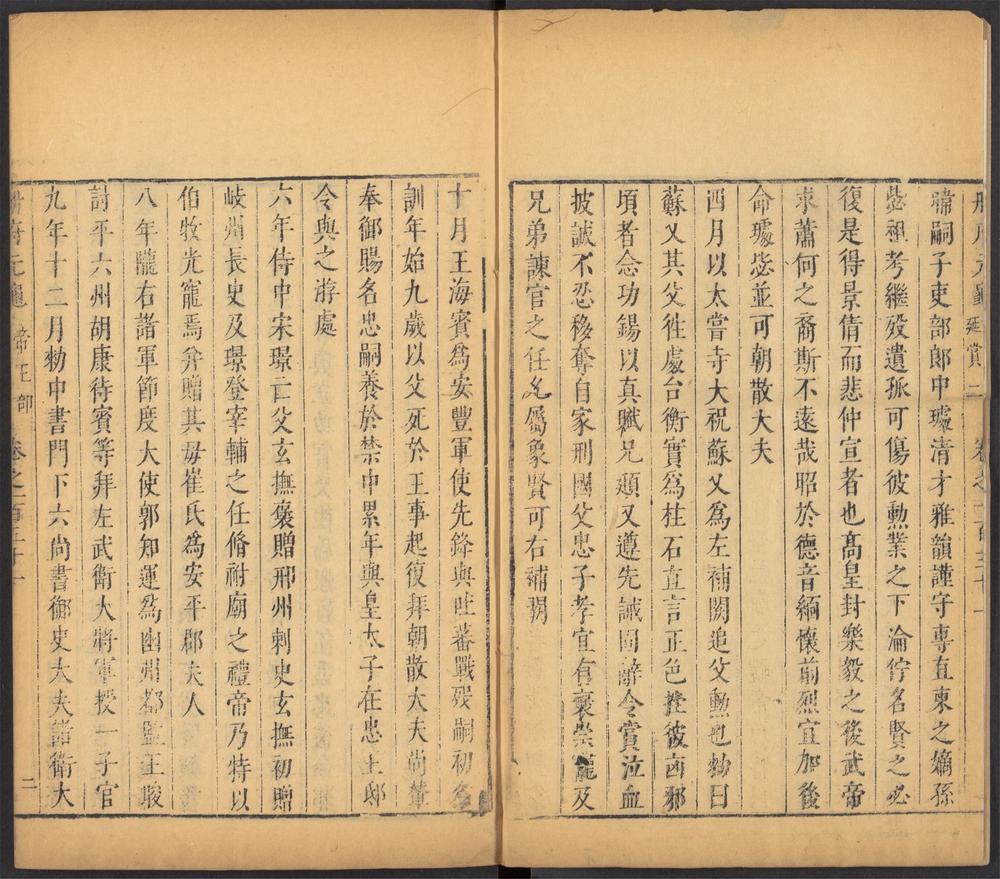 冊府元龜 延賞二 卷之一百三十
禕嗣子吏部郎中璩清才雅韻謹守專直東之嫡孫
毖祖考繼歿遺孤可傷彼勳業之下淪佇名賢之必
復是得景倩而悲仲宣者也高皇封樂毅之後武帝
求蕭何之裔斯不遠哉昭於德音緬懷前烈宜加後
命璩毖並可朝散大夫
四月以太嘗寺大祝蘇又為左補闕追父勳也勑曰
蘇又其父徃處台衡實為柱石直言正色 彼囬邪
頃者念功錫以真賦兄頲又遵先誡固辭令賞泣血
披誠不忍移奪自家刑國父忠子孝宜有褒崇寵及
兄弟諫官之任允屬象賢可右補闕
十月王海賓為安豐軍使先鋒與吐蕃戰歿嗣初名
訓年始九歲以父死於王事起復拜朝散大夫尚輦
奉御賜名忠嗣養於禁中累年與皇太子在忠王邸
令與之游處
六年侍中宋璟亡父玄撫褒贈邢州刺史玄撫初贈
岐州長史及璟登宰輔之任脩祔廟之禮帝乃特以
伯牧光寵焉并贈其母崔氏為安平郡夫人
八年隴右諸軍節度大使郭知運為幽州都 王晙
討平六州胡康待賓等拜左武衛大將軍授一子官
九年十二月勑中書門下六尚書御史大夫諸衛大
冊府元龜 帝王部 卷之一百三十一 二